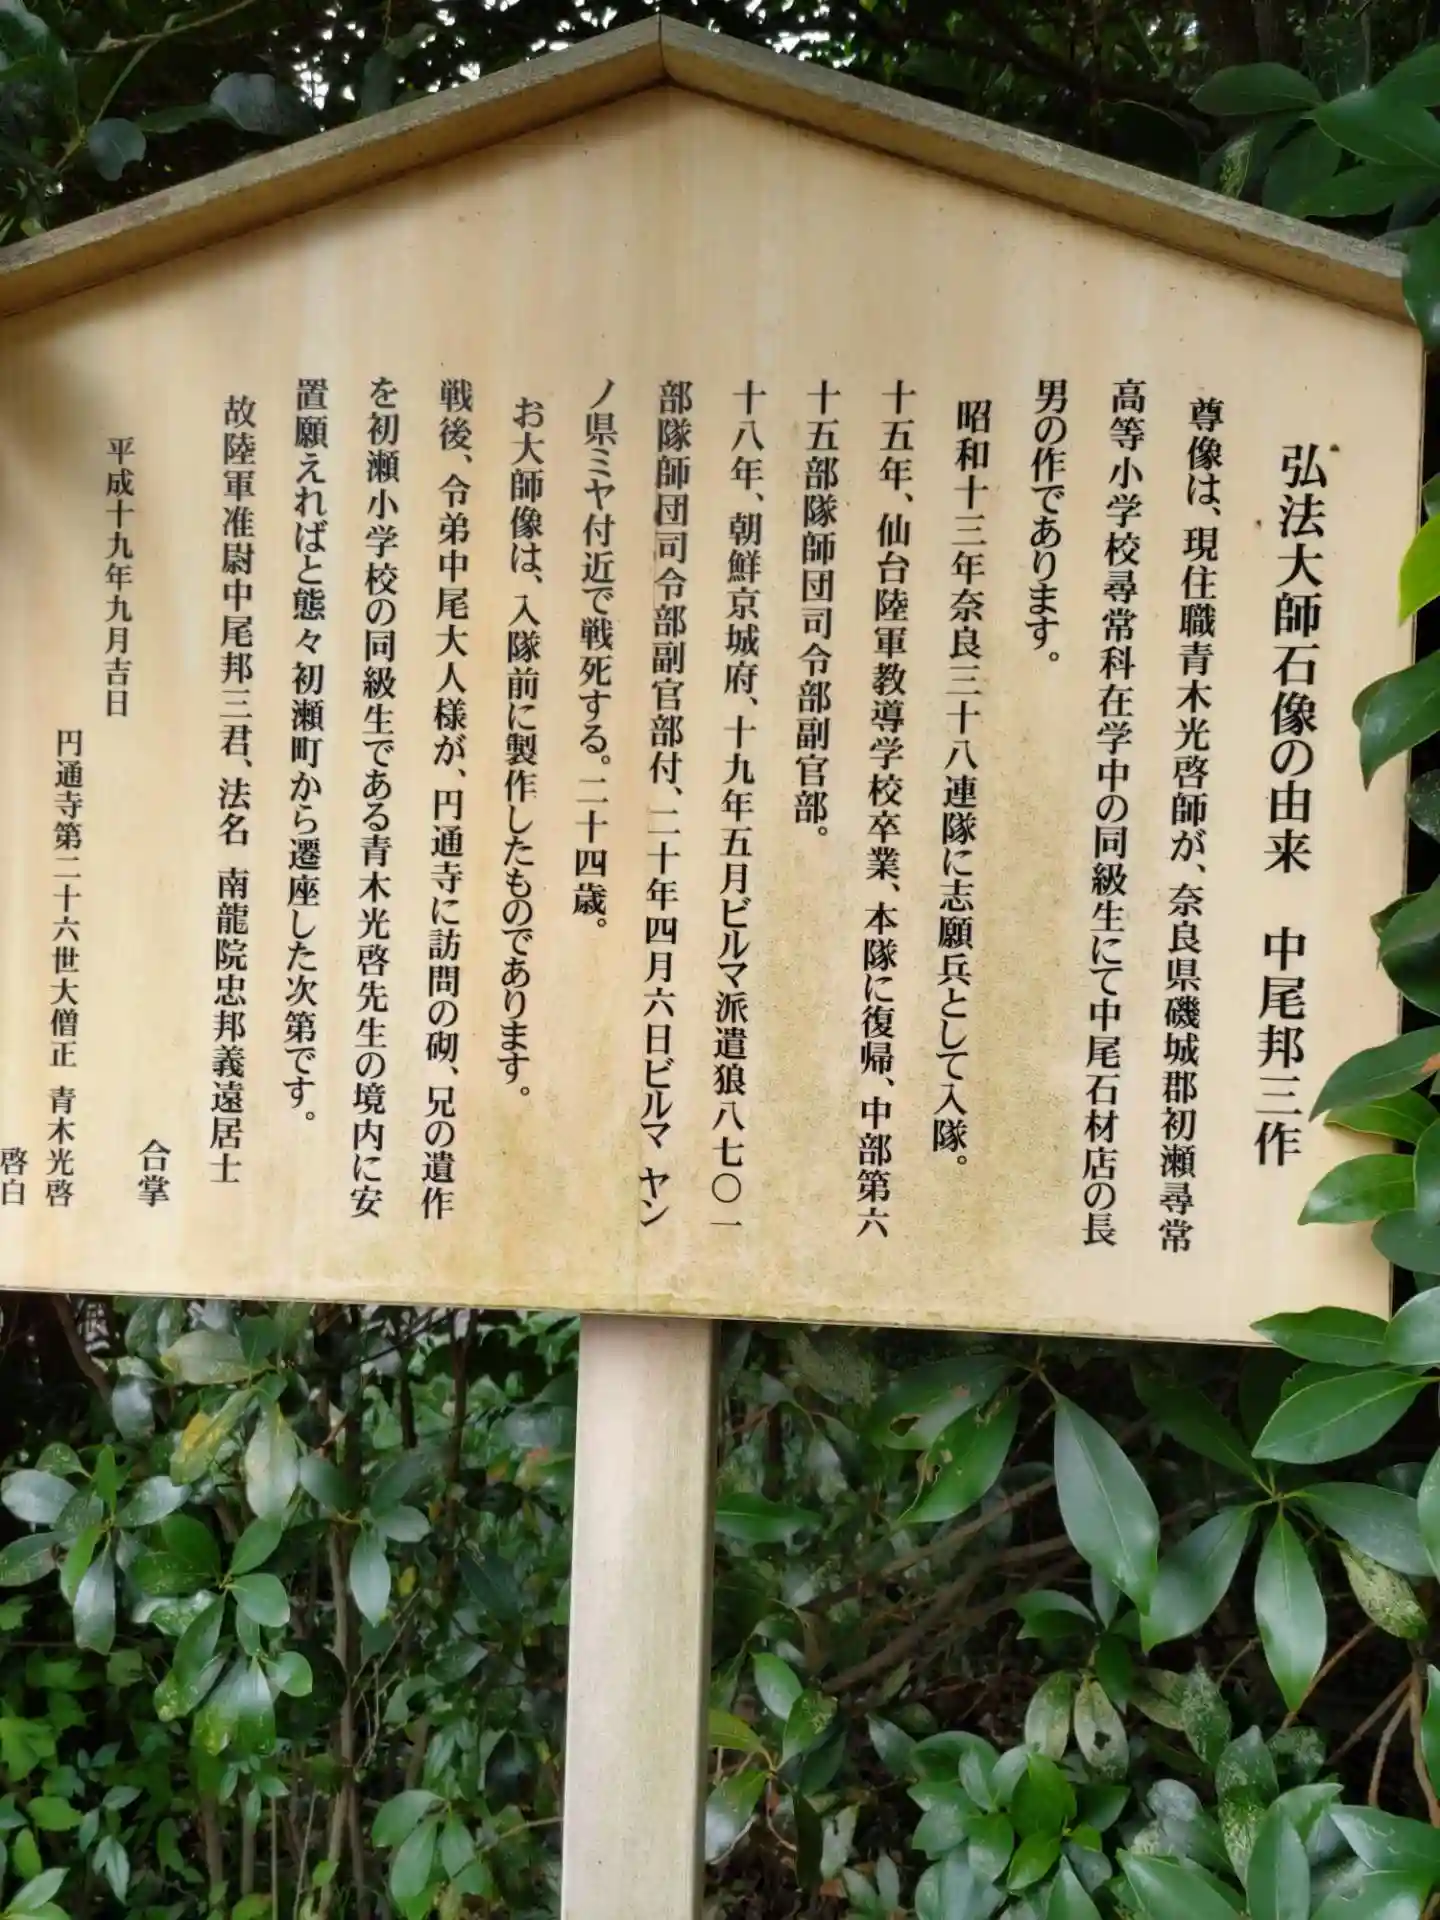 弘法大師石像の由来　中尾邦三作
尊像は、現住職青木光啓師が、奈良県磯城郡初瀬尋常
高等小学校尋常科在学中の同級生にて中尾石材店の長
男の作であります。
昭和十三年奈良三十八連隊に志願兵として入隊。
十五年、仙台陸軍教導学校卒業、本隊に復帰、中部第六
十五部隊師団司令部副官部。
十八年、朝鮮京城府、十九年五月ビルマ派遣狼八七〇一
部隊師団司令部副官部付、二十年四月六日ビルマ ヤン
ノ県ミヤ付近で戦死する。二十四歳。
お大師像は、入隊前に製作したものであります。
戦後、令弟中尾大人様が、円通寺に訪問の砌、兄の遺作
を初瀬小学校の同級生である青木光啓先生の境内に安
置願えればと態々初瀬町から遷座した次第です。
故陸軍准尉中尾邦三君、法名 南龍院忠邦義遠居士
合掌
平成十九年九月吉日
円通寺第二十六世大僧正 青木光啓
啓白